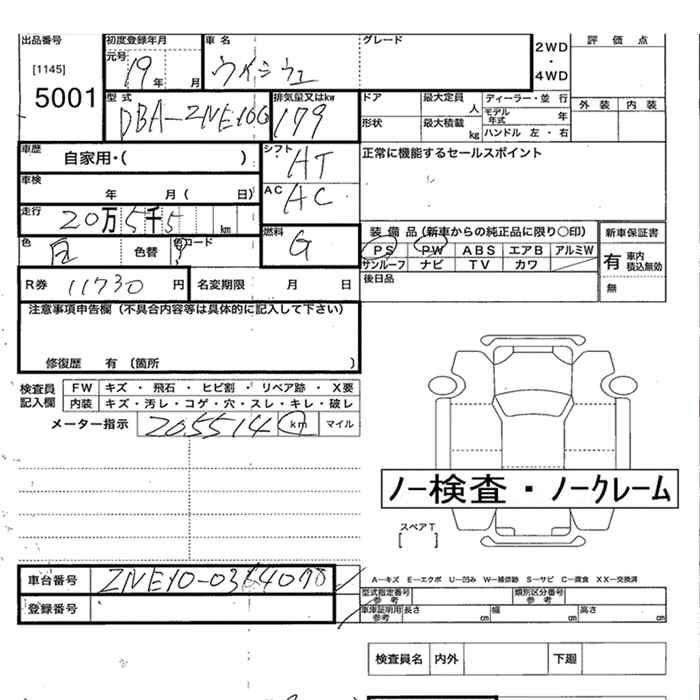 出品番号 初度登録年月 車名 グレード 2WD・4WD 評価点
[1145] 元号 19年 月 ウイシュ
5001 外装 内装
型式 排気量又はkw ドア 最大定員 人 ディーラー・並行
DBA-ZNE10G 179 モデル年式 年
形状 最大積載 kg ハンドル 左・右
車歴 自家用・( ) シフト AT 正常に機能するセールスポイント
車検 年 月( 日) AC AC
走行 20万5千5 km 燃料 G 装備品(新車からの純正品に限り〇印) 新車保証書
色 色替 色コード PS PW ABS エアB アルミW 有 車内積込無効
サンルーフ ナビ TV カワ
R券 11730 円 名変期限 月 日 後日品 無
注意事項申告欄(不具合内容等は具体的に記入して下さい)
修復歴 有(箇所 )
検査員記入欄 FW キズ・飛石・ヒビ割・リペア跡・X要
内装 キズ・汚レ・コゲ・穴・スレ・キレ・破レ
メーター指示 205514 km マイル
ノー検査・ノークレーム
スペアT
[ ]
車台番号 ZNE10-0364078 A－キズ E－エクボ U－凹み W－補修跡 S－サビ C－腐食 XX－交換済
型式指定番号参考 類別区分番号参考
登録番号 車庫証明用参考 長さ cm 幅 cm 高さ cm
検査員名 内外 下廻